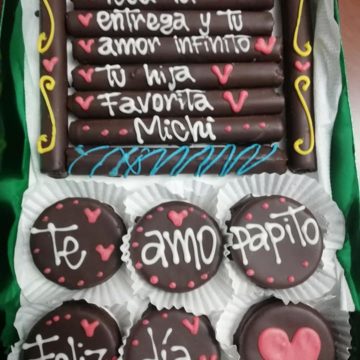 entrega y tu
amor infinito
tu hija
Favorita
Michi
te amo papito
Feliz día